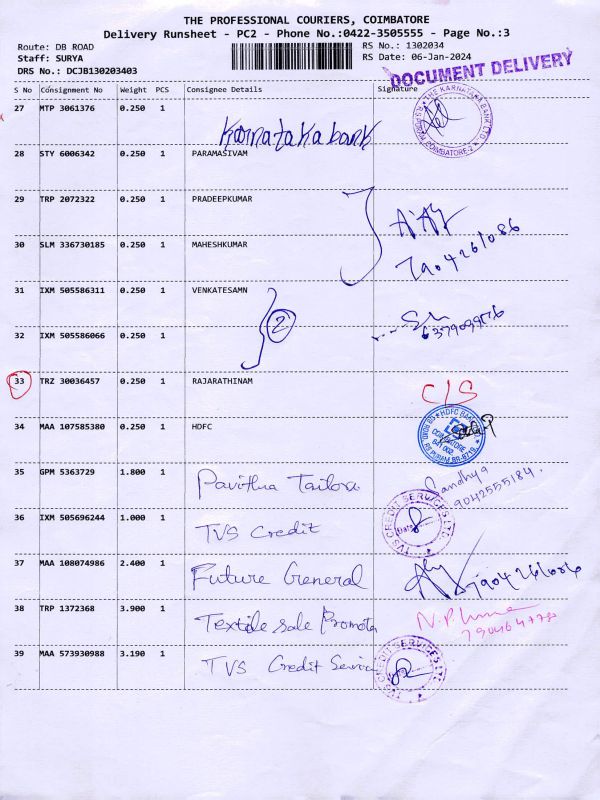 THE PROFESSIONAL COURIERS, COIMBATORE
Delivery Runsheet - PC2 - Phone No.:0422-3505555 - Page No.:3
Route: DB ROAD
Staff: SURYA
DRS No.: DCJB130203403
RS No.: 1302034
RS Date: 06-Jan-2024
DOCUMENT DELIVERY
S No Consignment No Weight PCS Consignee Details Signature
27 MTP 3061376 0.250 1 Karnataka bank
THE KARNATAKA BANK LTD. COIMBATORE-2
28 STY 6006342 0.250 1 PARAMASIVAM
29 TRP 2072322 0.250 1 PRADEEPKUMAR
30 SLM 336730185 0.250 1 MAHESHKUMAR
7904261086
31 IXM 505586311 0.250 1 VENKATESAMN
2
32 IXM 505586066 0.250 1
33 TRZ 30036457 0.250 1 RAJARATHINAM C/S
34 MAA 107585380 0.250 1 HDFC
HDFC BANK COIMBATORE 641 002
35 GPM 5363729 1.800 1 Pavithra Tailors Sandhya
9042555184.
36 IXM 505696244 1.000 1 TVS Credit
TVS CREDIT SERVICES LTD.
37 MAA 108074986 2.400 1 Future General 7904261086
38 TRP 1372368 3.900 1 Textile Sale Promotn
39 MAA 573930988 3.190 1 TVS Credit Service
TVS CREDIT SERVICES LTD.